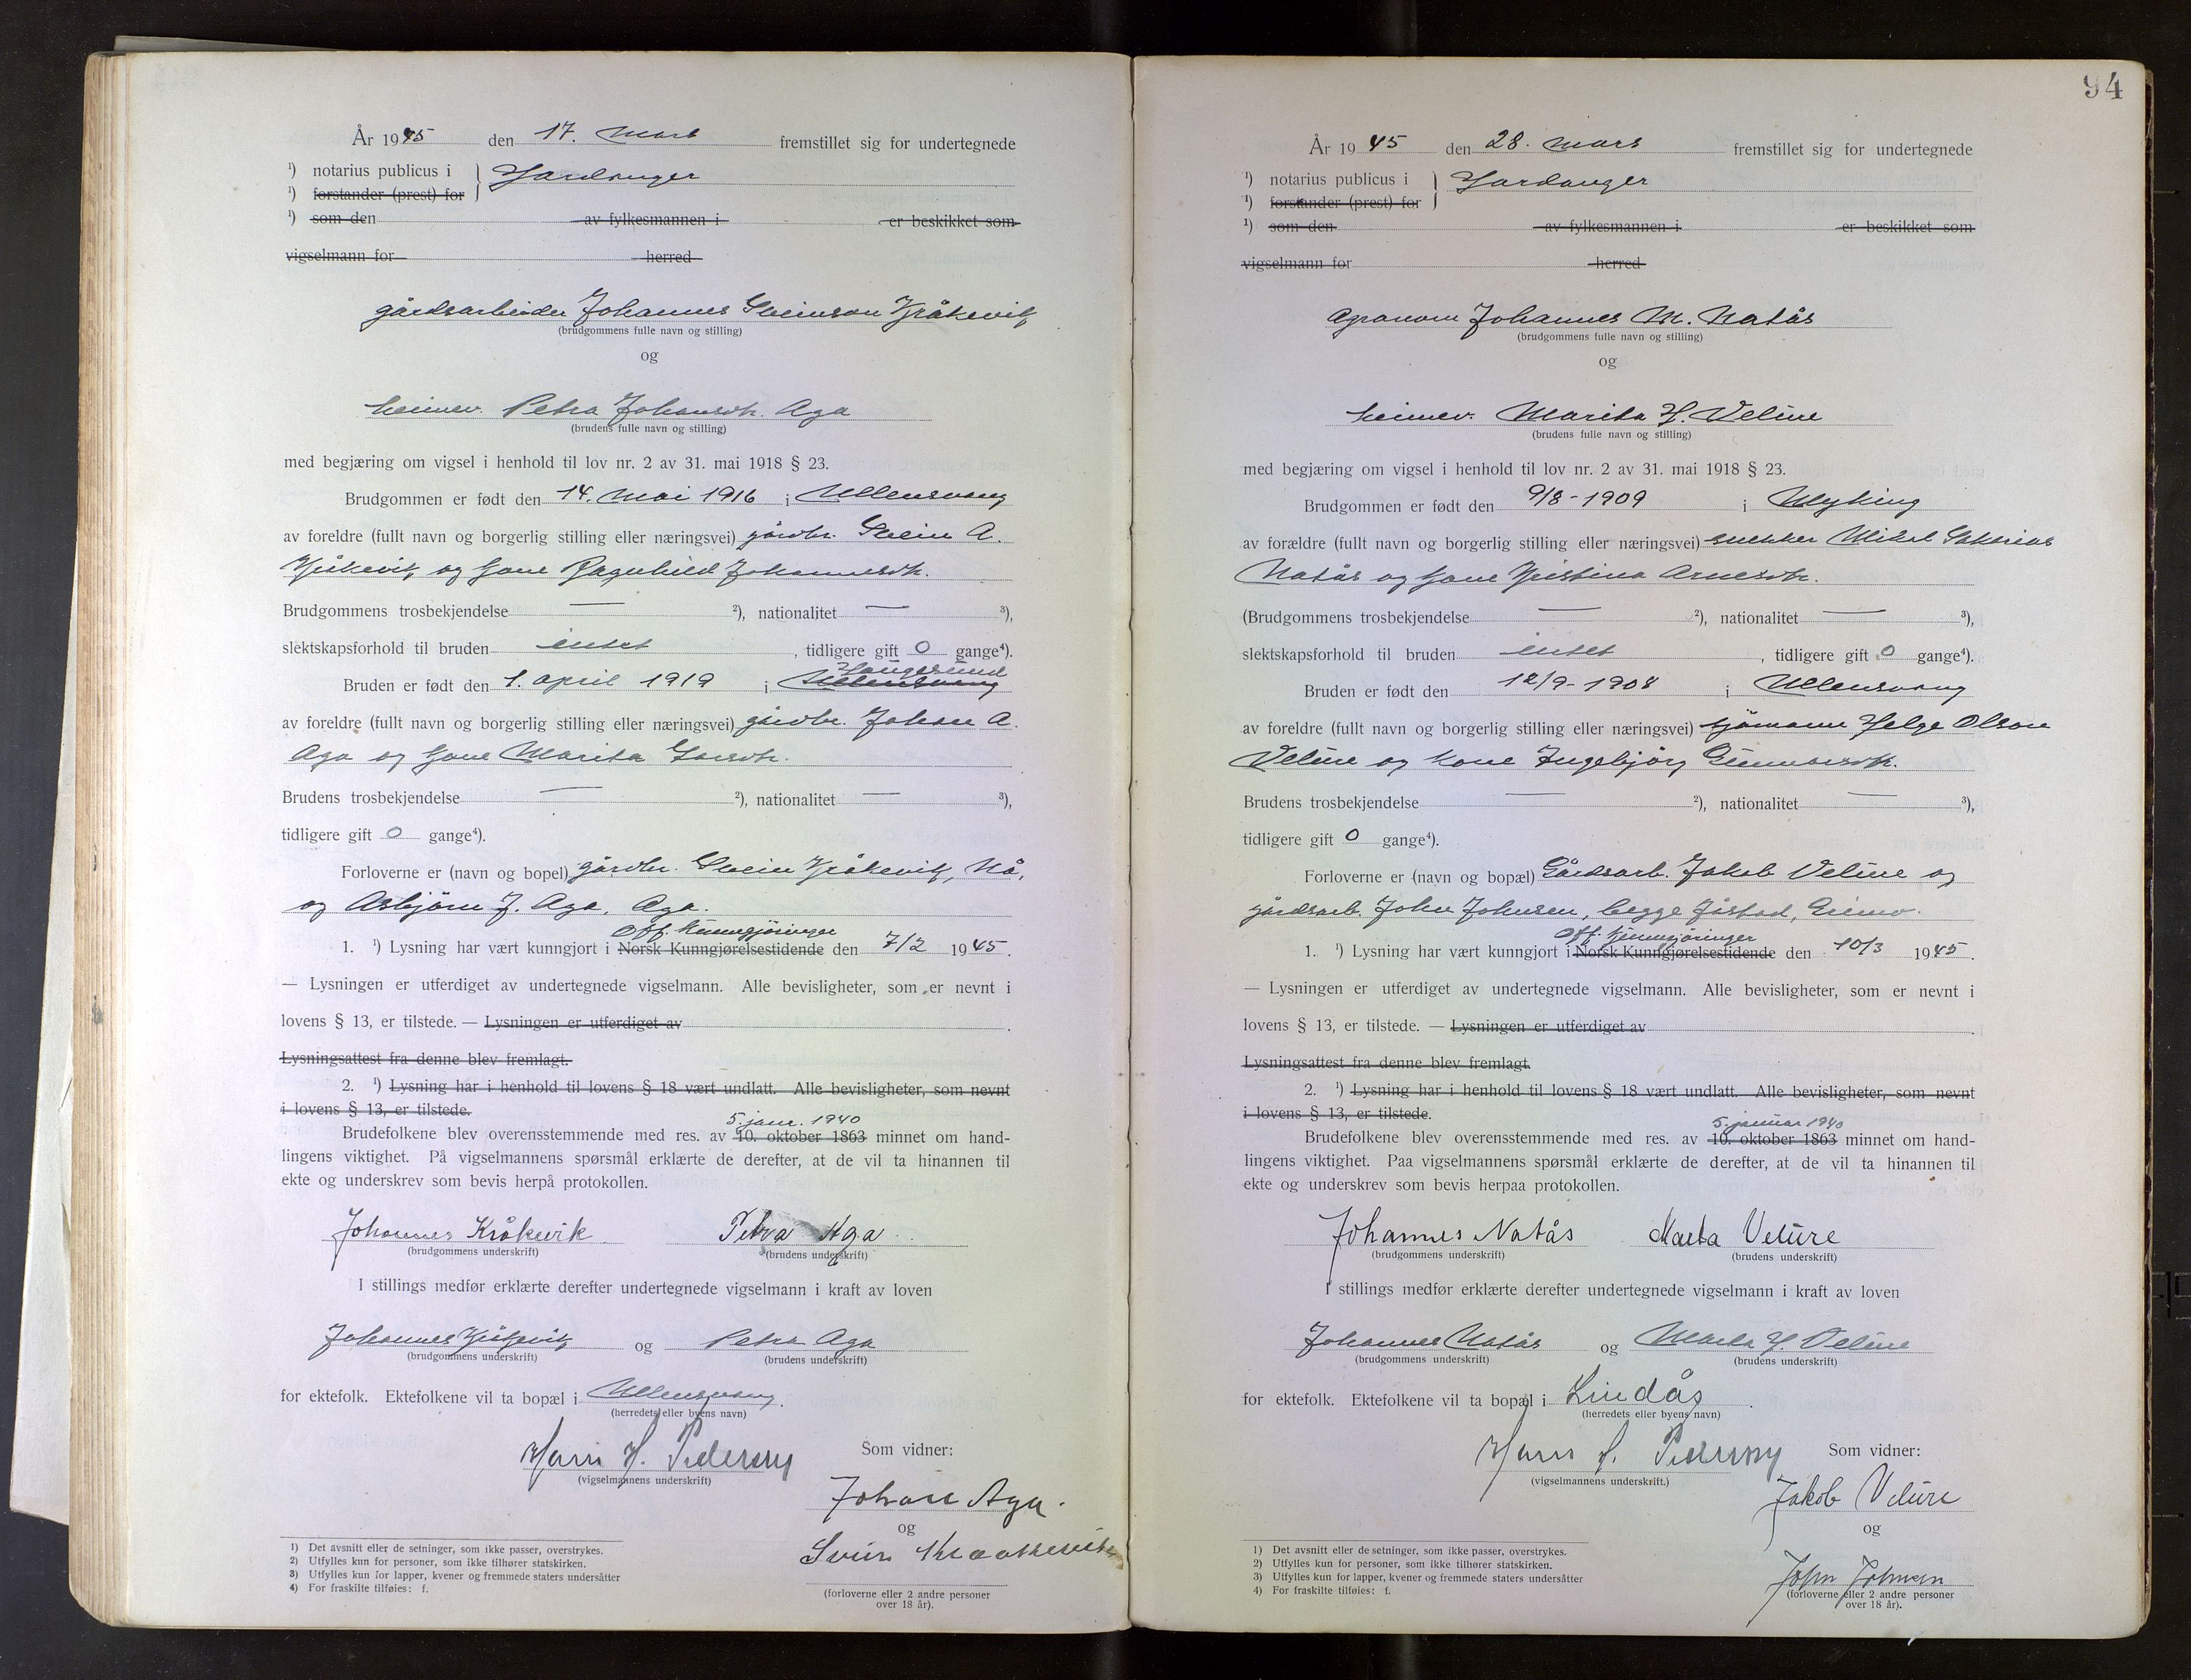 År 1945 den 17. Mars fremstillet sig for undertegnede
¹) notarius publicus i } Hardanger
¹) forstander (prest) for
¹) som den av fylkesmannen i er beskikket som
vigselmann for herred
gårdsarbeider Johannes Sveinson Kråkevik
(brudgommens fulle navn og stilling)
og
heimev. Petra Johansdtr. Aga
(brudens fulle navn og stilling)
med begjæring om vigsel i henhold til lov nr. 2 av 31. mai 1918 § 23.
Brudgommen er født den 14. Mai 1916 i Ullensvang
av foreldre (fullt navn og borgerlig stilling eller næringsvei) gårdbr. Svein A.
Kråkevik og kone Ragnhild Johannesdtr.
Brudgommens trosbekjendelse — ²), nationalitet — ³),
slektskapsforhold til bruden intet, tidligere gift 0 gange⁴).
Haugesund
Bruden er født den 1. april 1919 i Ullensvang
av foreldre (fullt navn og borgerlig stilling eller næringsvei) gårdbr. Johan A.
Aga og kone Marita Larsdtr.
Brudens trosbekjendelse — ²), nationalitet — ³),
tidligere gift 0 gange⁴).
Forloverne er (navn og bopel) gårdbr. Svein Kråkevik, Nå,
og Asbjörn J. Aga, Aga.
Off. Kunngjøringer
1. ¹) Lysning har vært kunngjort i Norsk Kunngjørelsestidende den 7/2 1945.
— Lysningen er utferdiget av undertegnede vigselmann. Alle bevisligheter, som er nevnt i
lovens § 13, er tilstede. — Lysningen er utferdiget av .
Lysningsattest fra denne blev fremlagt.
2. ¹) Lysning har i henhold til lovens § 18 vært undlatt. Alle bevisligheter, som nevnt
i lovens § 13, er tilstede.
5. jan. 1940
Brudefolkene blev overensstemmende med res. av 10. oktober 1863 minnet om hand-
lingens viktighet. På vigselmannens spørsmål erklærte de derefter, at de vil ta hinannen til
ekte og underskrev som bevis herpå protokollen.
Johannes Kråkevik Petra Aga
(brudgommens underskrift) (brudens underskrift)
I stillings medfør erklærte derefter undertegnede vigselmann i kraft av loven
Johannes Kråkevik og Petra Aga
(brudgommens underskrift) (brudens underskrift)
for ektefolk. Ektefolkene vil ta bopæl i Ullensvang.
(herredets eller byens navn)
Hans H. Pedersen Som vidner:
(vigselmannens underskrift)
Johan Aga.
og
Svein Kraakevik
(forloverne eller 2 andre personer
over 18 år).
1) Det avsnitt eller de setninger, som ikke passer, overstrykes.
2) Utfylles kun for personer, som ikke tilhører statskirken.
3) Utfylles kun for lapper, kvener og fremmede staters undersåtter
4) For fraskilte tilføies: f.
94
År 1945 den 28. mars fremstillet sig for undertegnede
¹) notarius publicus i } Hardanger
¹) forstander (prest) for
¹) som den av fylkesmannen i er beskikket som
vigselmann for herred
Agronom Johannes M. Natås
(brudgommens fulle navn og stilling)
og
heimev. Marita H. Velure
(brudens fulle navn og stilling)
med begjæring om vigsel i henhold til lov nr. 2 av 31. mai 1918 § 23.
Brudgommen er født den 9/8-1909 i Myking
av forældre (fullt navn og borgerlig stilling eller næringsvei) snekker Mikal Sakarias
Natås og kone Kristina Arnesdtr.
(Brudgommens trosbekjendelse — ²), nationalitet — ³),
slektskapsforhold til bruden intet, tidligere gift 0 gange⁴).
Bruden er født den 12/9-1908 i Ullensvang
av foreldre (fullt navn og borgerlig stilling eller næringsvei) sjömann Helge Olson
Velure og kone Ingebjörg Gunnarsdtr.
Brudens trosbekjendelse — ²), nationalitet — ³),
tidligere gift 0 gange⁴).
Forloverne er (navn og bopæl) Gårdsarb. Jakob Velure og
gårdsarb. John Johnsen, begge Jåstad, Grimo.
Off. Kunngjøringer
1. ¹) Lysning har vært kunngjort i Norsk Kunngjørelsestidende den 10/3 1945.
— Lysningen er utferdiget av undertegnede vigselmann. Alle bevisligheter, som er nevnt i
lovens § 13, er tilstede. — Lysningen er utferdiget av .
Lysningsattest fra denne blev fremlagt.
2. ¹) Lysning har i henhold til lovens § 18 vært undlatt. Alle bevisligheter, som nevnt
i lovens § 13, er tilstede.
5. januar 1940
Brudefolkene blev overensstemmende med res. av 10. oktober 1863 minnet om hand-
lingens viktighet. Paa vigselmannens spørsmål erklærte de derefter, at de vil ta hinannen til
ekte og underskrev som bevis herpaa protokollen.
Johannes Natås Marta Velure
(brudgommens underskrift) (brudens underskrift)
I stillings medfør erklærte derefter undertegnede vigselmann i kraft av loven
Johannes Natås og Marta H. Velure
(brudgommens underskrift) (brudens underskrift)
for ektefolk. Ektefolkene vil ta bopæl i Lindås.
(herredets eller byens navn)
Hans H. Pedersen Som vidner:
(vigselmannens underskrift.)
Jakob Velure
og
John Johnsen
(forloverne eller 2 andre personer
over 18 år).
1) Det avsnitt eller de setninger, som ikke passer, overstrykes.
2) Utfylles kun for personer, som ikke tilhører statskirken.
3) Utfylles kun for lapper, kvener og fremmede staters undersåtter
4) For fraskilte tilføies: f.